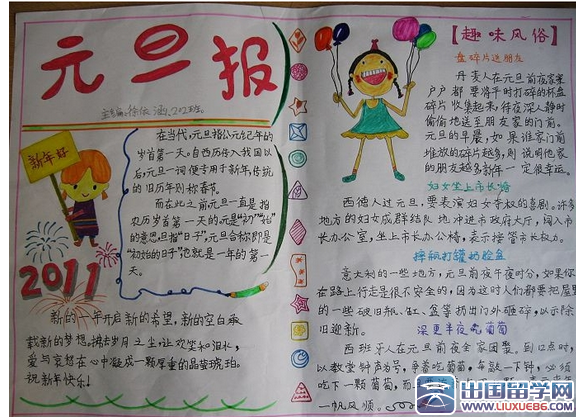 元旦报
主编:徐依涵、202班
新年好
2011
在当代,元旦指公元纪年的
岁首第一天。自西历传入我国以
后,元旦一词便专用于新年,传统
的旧历新年则称春节。
而在此之前元旦一直是指
农历岁首第一天的。元是“初”“始”
的意思,旦指“日子”,元旦合称即是
“初始的日子”也就是一年的第一
天。
新的一年开启新的希望,新的空白承
载新的梦想。拂去岁月之尘,让欢笑和泪水,
爱与哀愁在心中凝成一颗厚重的晶莹琥珀。
祝新年快乐!
【趣味风俗】
盘碎片送朋友
丹麦人在元旦前夜家家
户户都要将平时打碎的杯盘
碎片收集起来,待夜深人静时
偷偷地送至朋友家的门前。
元旦的早晨,如果谁家门前
堆放的碎片越多,则说明他家
的朋友越多新年一定很幸运。
妇女坐上市长椅
西德人过元旦,要表演妇女夺权的喜剧。许多
地方的妇女成群结队地冲进市政府大厅,闯入市
长办公室,坐上市长办公椅,表示接管市长权力。
摔瓶打罐扔脸盆
意大利的一些地方,元旦前夜午夜时分,如果你
在路上行走是很不安全的,因为这时人们都要把屋里
的一些破旧瓶、缸、盆等扔出门外砸碎,以示除
旧迎新。
深更半夜吃葡萄
西班牙人在元旦前夜全家团聚,到12点时,
以教堂钟声为号,争着吃葡萄,每敲一下钟,必须
吃下一颗葡萄,而
一帆风顺。
出国留学网
www.liuxue86.com